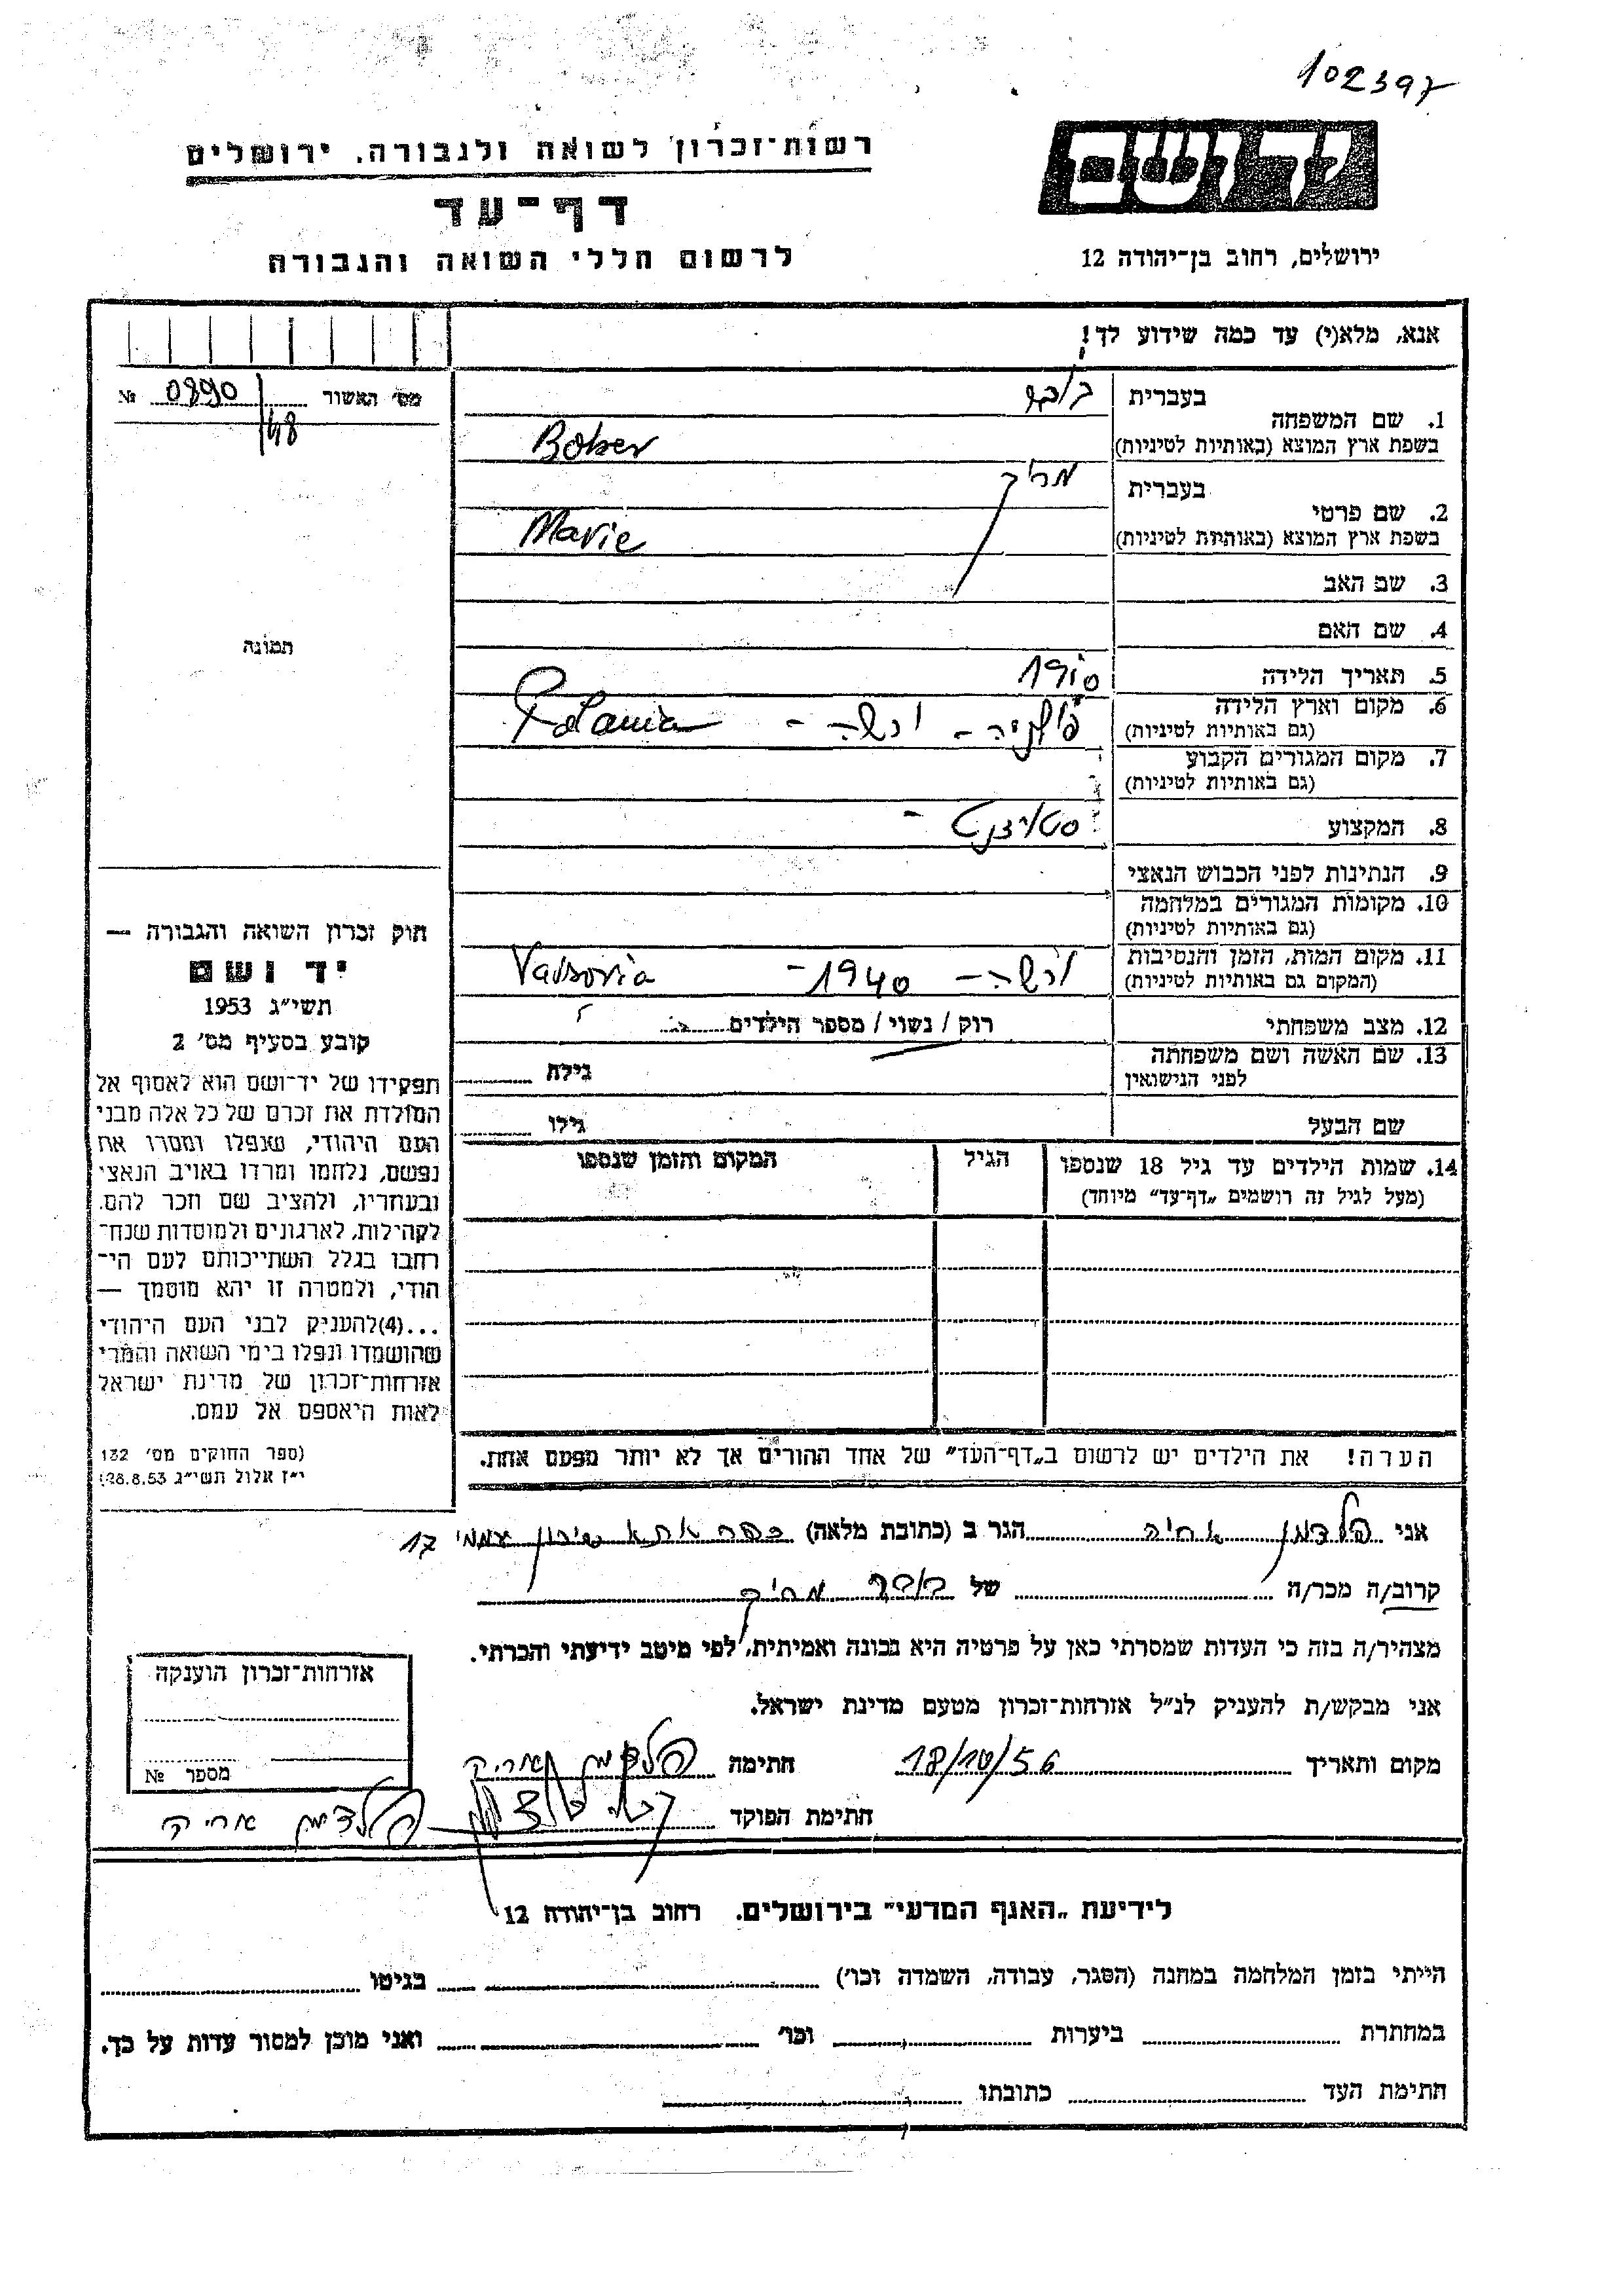 102397
יד ושם
רשות-זכרון לשואה ולגבורה, ירושלים
דף-עד
לרשום חללי השואה והגבורה
ירושלים, רחוב בן-יהודה 12
אנא, מלא(י) עד כמה שידוע לך!
מס׳ האשור 0890 №
48
בעברית בובר
1. שם המשפחה
בשפת ארץ המוצא (באותיות לטיניות) Bober
בעברית
2. שם פרטי
בשפת ארץ המוצא (באותיות לטיניות) Marie
3. שם האב
4. שם האם
5. תאריך הלידה 1910
6. מקום וארץ הלידה
(גם באותיות לטיניות) פולניה - ורשה - Polania
7. מקום המגורים הקבוע
(גם באותיות לטיניות)
8. המקצוע סטודנט -
9. הנתינות לפני הכבוש הנאצי
10. מקומות המגורים במלחמה
(גם באותיות לטיניות)
11. מקום המות, הזמן והנסיבות
(המקום גם באותיות לטיניות) ורשה - 1940 - Varsovia
12. מצב משפחתי רוק / נשוי / מספר הילדים
13. שם האשה ושם משפחתה
לפני הנישואין גילה
שם הבעל גילו
14. שמות הילדים עד גיל 18 שנספו הגיל המקום והזמן שנספו
(מעל לגיל זה רושמים „דף-עד״ מיוחד)
הערה! את הילדים יש לרשום ב„דף-העד״ של אחד ההורים אך לא יותר מפעם אחת.
תמונה
חוק זכרון השואה והגבורה —
יד ושם
תשי״ג 1953
קובע בסעיף מס׳ 2
תפקידו של יד-ושם הוא לאסוף אל
המולדת את זכרם של כל אלה מבני
העם היהודי, שנפלו ומסרו את
נפשם, נלחמו ומרדו באויב הנאצי
ובעוזריו, ולהציב שם וזכר להם,
לקהילות, לארגונים ולמוסדות שנח-
רבו בגלל השתייכותם לעם הי-
הודי, ולמטרה זו יהא מוסמך —
...(4)להעניק לבני העם היהודי
שהושמדו ונפלו בימי השואה והמרי
אזרחות-זכרון של מדינת ישראל
לאות היאספם אל עמם.
(ספר החוקים מס׳ 132
י״ז אלול תשי״ג 28.8.53)
אני פלדמן הגר ב (כתובת מלאה) כפר אתא שיכון עממי 17
קרוב/ה מכר/ה של בובר
מצהיר/ה בזה כי העדות שמסרתי כאן על פרטיה היא נכונה ואמיתית, לפי מיטב ידיעתי והכרתי.
אני מבקש/ת להעניק לנ״ל אזרחות-זכרון מטעם מדינת ישראל.
מקום ותאריך 18/10/56 חתימה פלדמן אריה
חתימת הפוקד פלדמן אריה
אזרחות-זכרון הוענקה
מספר №
לידיעת „האגף המדעי״ בירושלים. רחוב בן-יהודה 12
הייתי בזמן המלחמה במחנה (הסגר, עבודה, השמדה וכו׳) בגיטו
במחתרת ביערות וכו׳ ואני מוכן למסור עדות על כך.
חתימת העד כתובתו